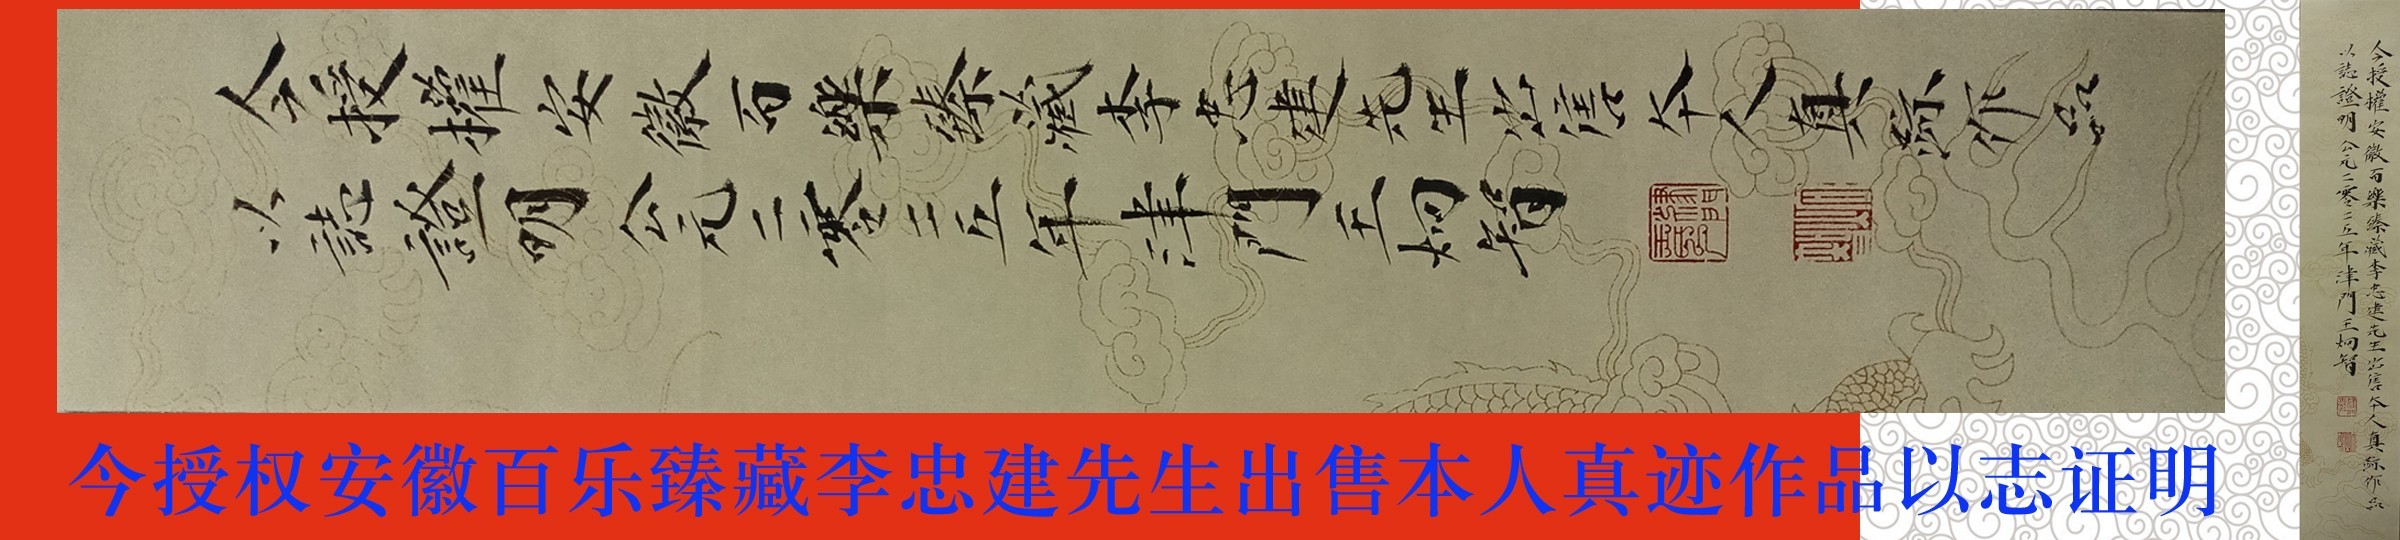 今授權安徽百樂臻藏李忠建先生出售本人真跡作品
以誌證明公元二零二五年津門王炯智
今授权安徽百乐臻藏李忠建先生出售本人真迹作品以志证明
今授權安徽百樂臻藏李忠建先生出售本人真跡作品
以誌證明公元二零二五年津門王炯智